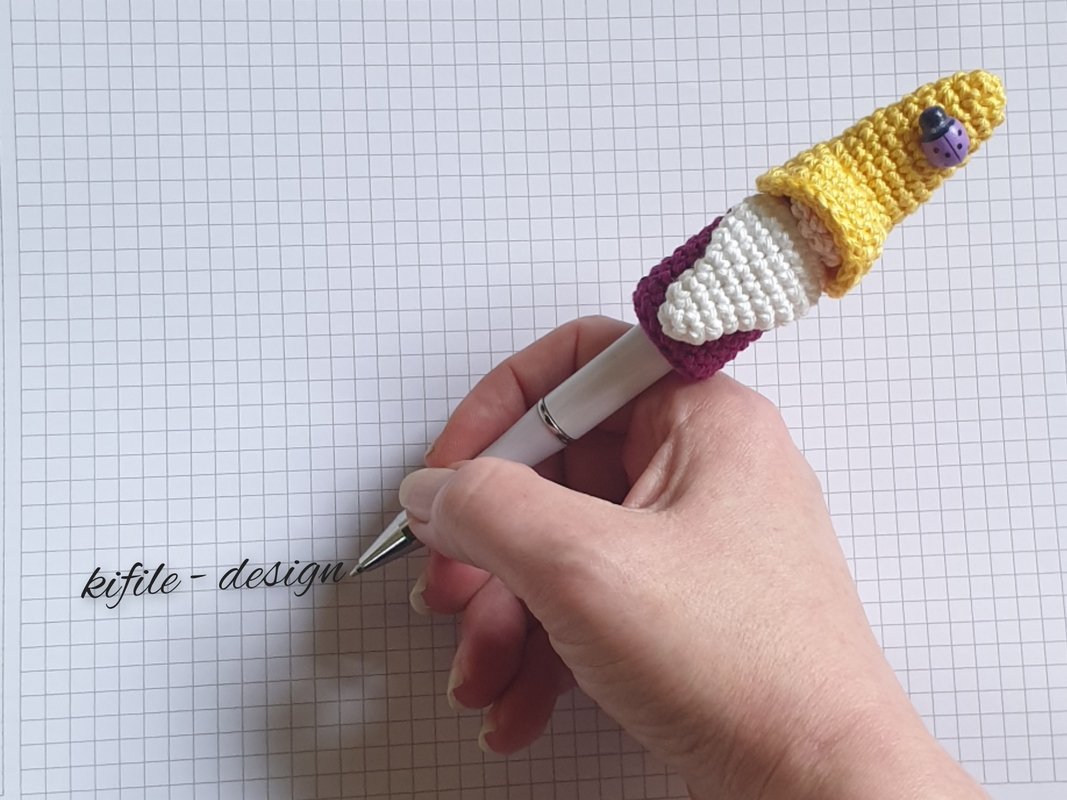 kifile - design